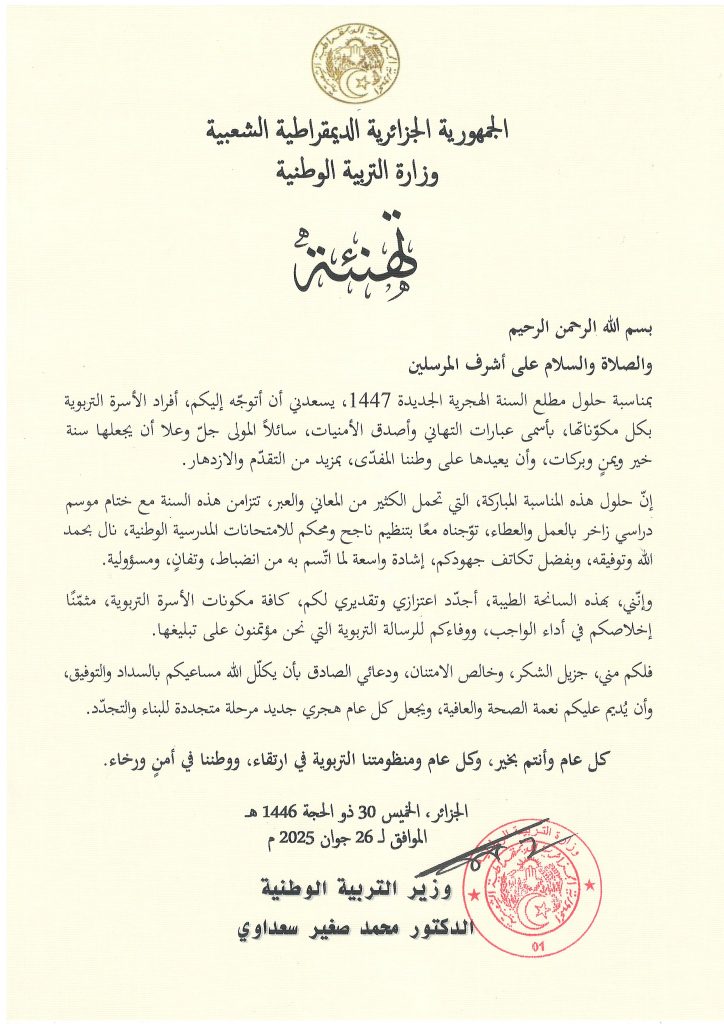 الجمهورية الجزائرية الديمقراطية الشعبية
وزارة التربية الوطنية
تهنئة
بسم الله الرحمن الرحيم
والصلاة والسلام على أشرف المرسلين
بمناسبة حلول مطلع السنة الهجرية الجديدة 1447، يسعدني أن أتوجّه إليكم، أفراد الأسرة التربوية
بكل مكوّناتها، بأسمى عبارات التهاني وأصدق الأمنيات، سائلاً المولى جلّ وعلا أن يجعلها سنة
خير ويمنٍ وبركات، وأن يعيدها على وطننا المفدّى، بمزيد من التقدّم والازدهار.
إنّ حلول هذه المناسبة المباركة، التي تحمل الكثير من المعاني والعبر، تتزامن هذه السنة مع ختام موسم
دراسي زاخر بالعمل والعطاء، توّجناه معًا بتنظيم ناجح ومحكم للامتحانات المدرسية الوطنية، نال بحمد
الله وتوفيقه، وبفضل تكاتف جهودكم، إشادة واسعة لما اتّسم به من انضباط، وتفانٍ، ومسؤولية.
وإنّني، بهذه السانحة الطيبة، أجدّد اعتزازي وتقديري لكم، كافة مكونات الأسرة التربوية، مثمّنًا
إخلاصكم في أداء الواجب، ووفاءكم للرسالة التربوية التي نحن مؤتمنون على تبليغها.
فلكم مني، جزيل الشكر، وخالص الامتنان، ودعائي الصادق بأن يكلّل الله مساعيكم بالسداد والتوفيق،
وأن يُديم عليكم نعمة الصحة والعافية، ويجعل كل عام هجري جديد مرحلة متجددة للبناء والتجدّد.
كل عام وأنتم بخير، وكل عام ومنظومتنا التربوية في ارتقاء، ووطننا في أمنٍ ورخاء.
الجزائر، الخميس 30 ذو الحجة 1446 هـ
الموافق لـ 26 جوان 2025 م
وزير التربية الوطنية
الدكتور محمد صغير سعداوي
وزارة التربية الوطنية
01